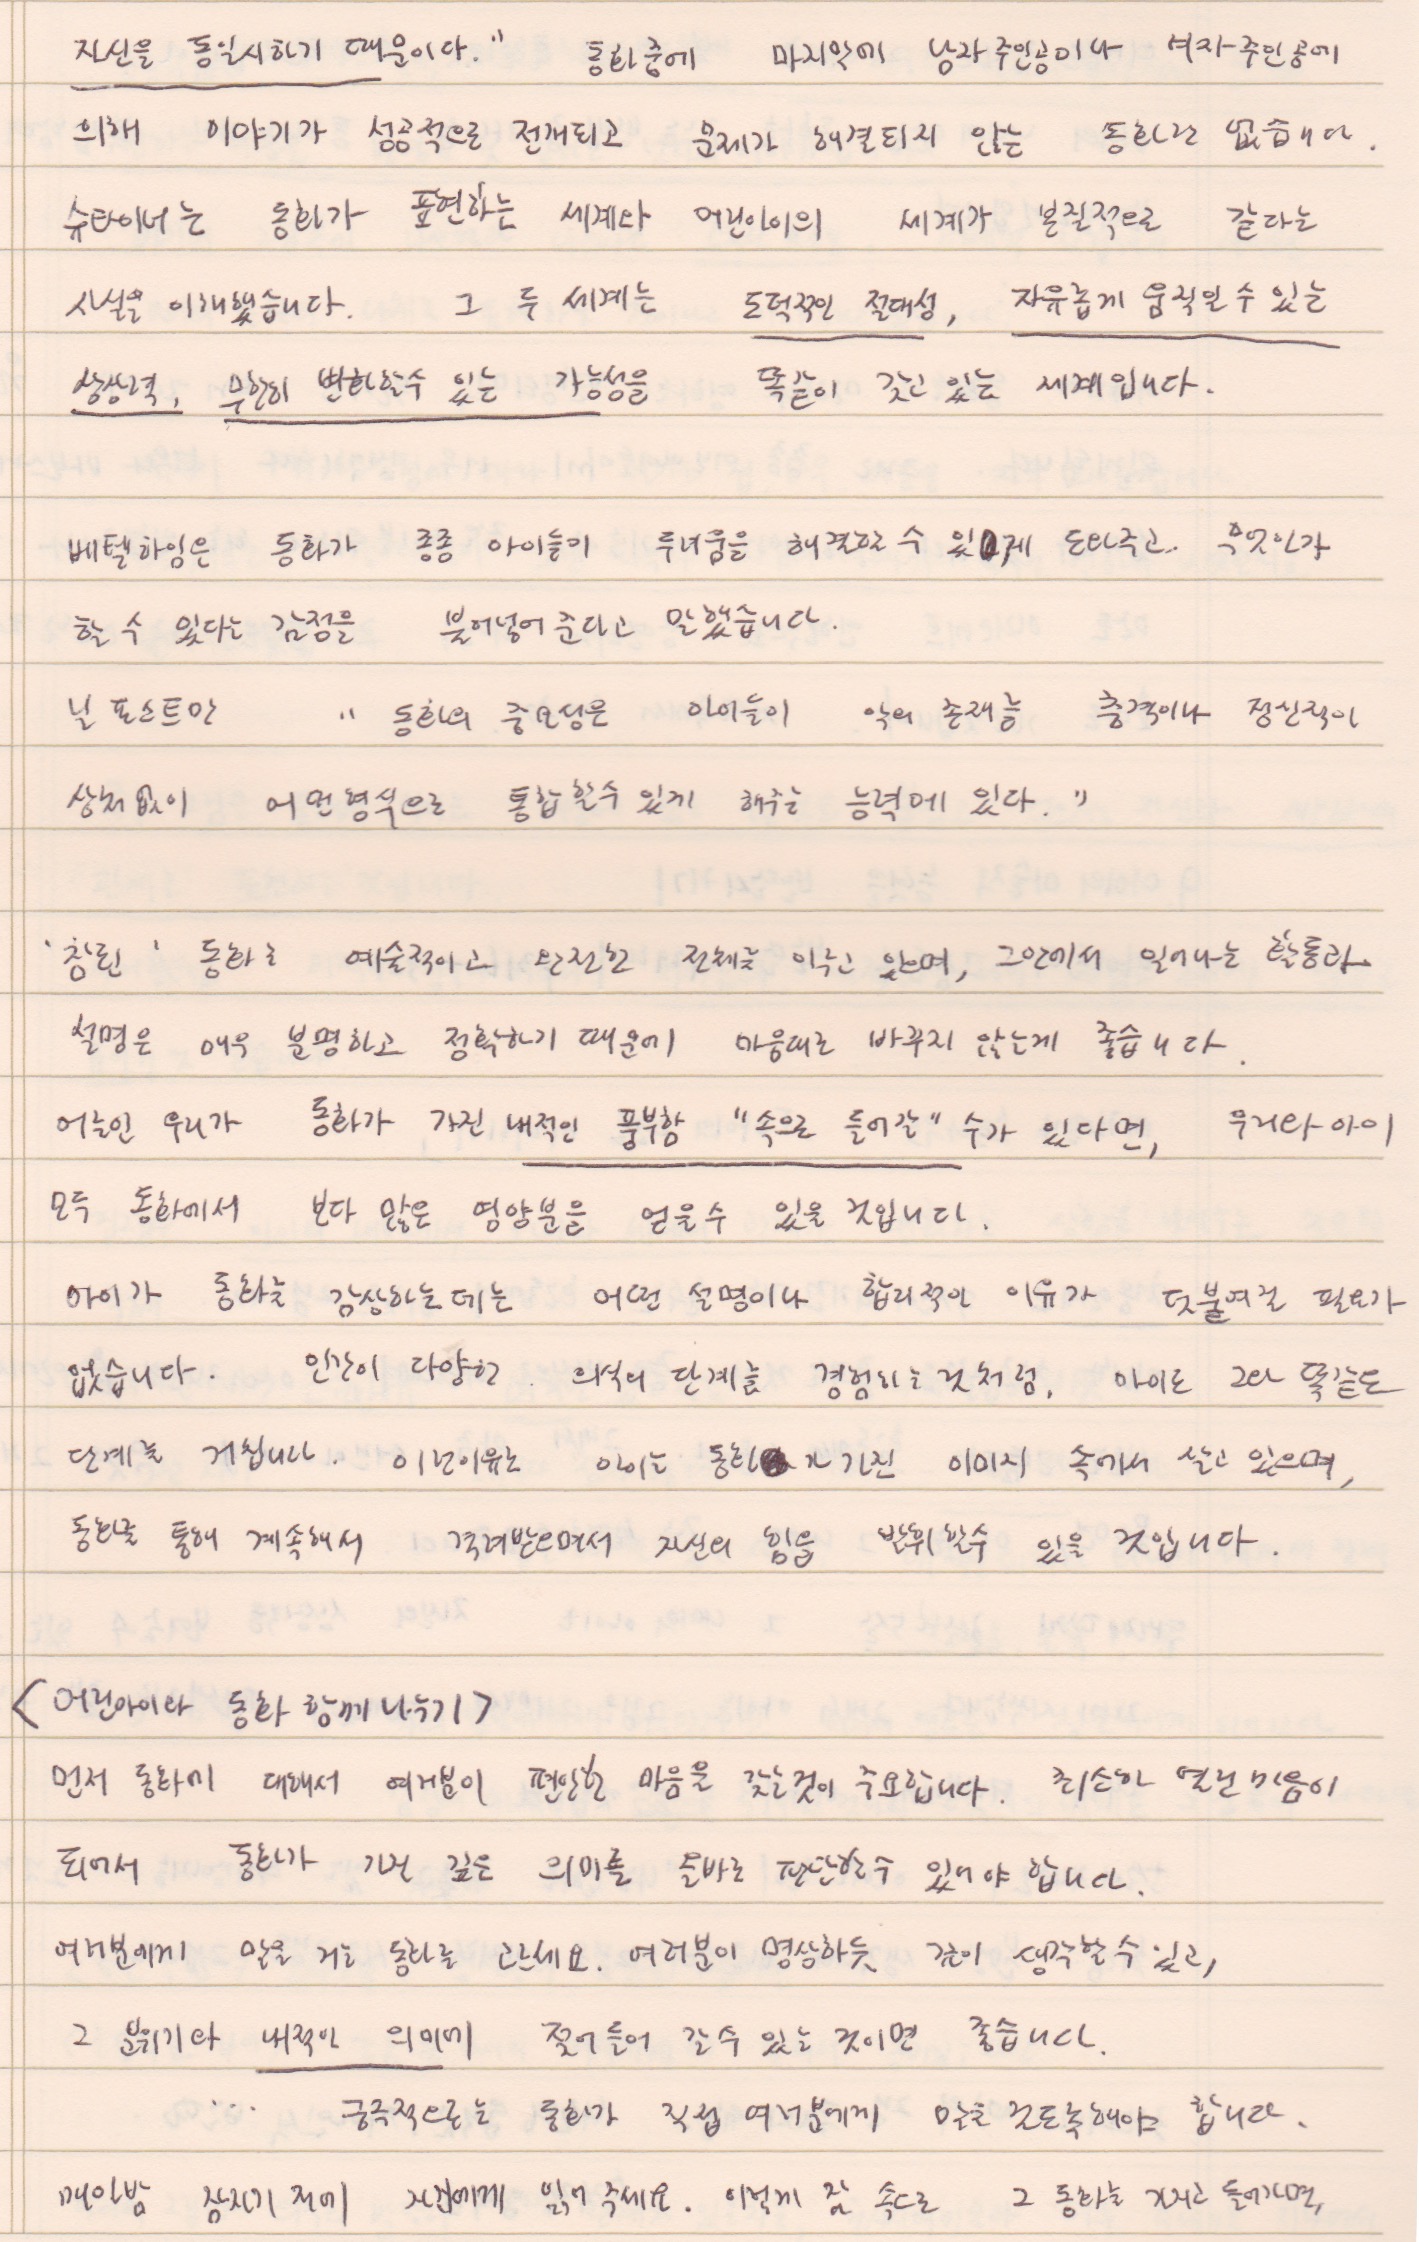 자신을 동일시하기 때문이다." 동화중에 마지막에 남자주인공이나 여자주인공에
의해 이야기가 성공적으로 전개되고 문제가 해결되지 않는 동화란 없습니다.
슈타이너는 동화가 표현하는 세계와 어린아이의 세계가 본질적으로 같다는
사실을 이해했습니다. 그 두 세계는 도덕적인 절대성, 자유롭게 움직일 수 있는
상상력, 무한히 변화할수 있는 가능성을 똑같이 갖고 있는 세계입니다.
베텔하임은 동화가 종종 아이들이 두려움을 해결할 수 있게 도와주고. 무엇인가
할 수 있다는 감정을 불어넣어 준다고 말했습니다.
닐 포스트만 "동화의 중요성은 아이들이 악의 존재를 충격이나 정신적이
상처없이 어떤형식으로 통합할수 있게 해주는 능력에 있다."
'참된' 동화는 예술적이고 완전한 전체를 이루고 있으며, 그안에서 일어나는 활동과
설명은 매우 분명하고 정확하기 때문에 마음대로 바꾸지 않는게 좋습니다.
어른인 우리가 동화가 가진 내적인 풍부함 "속으로 들어갈" 수가 있다면, 우리와 아이
모두 동화에서 보다 많은 영양분을 얻을수 있을 것입니다.
아이가 동화를 감상하는데는 어떤 설명이나 합리적인 이유가 덧붙여질 필요가
없습니다. 인간이 다양한 의식의 단계를 경험하는것처럼, 아이도 그와 똑같은
단계를 거칩니다. 이런이유로 아이는 동화가 가진 이미지 속에서 살고 있으며,
동화를 통해 계속해서 격려받으면서 자신의 힘을 발휘할수 있을 것입니다.
<어린아이와 동화 함께 나누기>
먼저 동화에 대해서 여러분이 편안한 마음을 갖는것이 중요합니다. 최소한 열린 마음이
되어서 동화가 가진 깊은 의미를 올바로 판단할수 있어야 합니다.
여러분에게 말을 거는 동화를 고르세요. 여러분이 명상하듯 깊이 생각할 수 있고,
그 분위기와 내적인 의미에 젖어들어 갈 수 있는 것이면 좋습니다.
... 궁극적으로는 동화가 직접 여러분에게 말을 걸도록해야 합니다.
매일밤 잠자기 전에 자신에게 읽어 주세요. 이렇게 잠 속으로 그 동화를 가지고 들어가면,